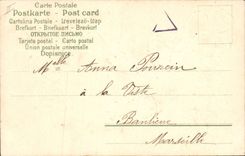 Carte Postale
Postkarte - Post card
Cartolina Postale - Levelező-Lap
Brefkort - Briefkaart - Brevkort
ОТКРЫТОЕ ПИСЬМО
Tarjeta postal - Carta postal
Union postale universelle
Dopisnice
Mlle Anna
à la
Banlieue
Marseille